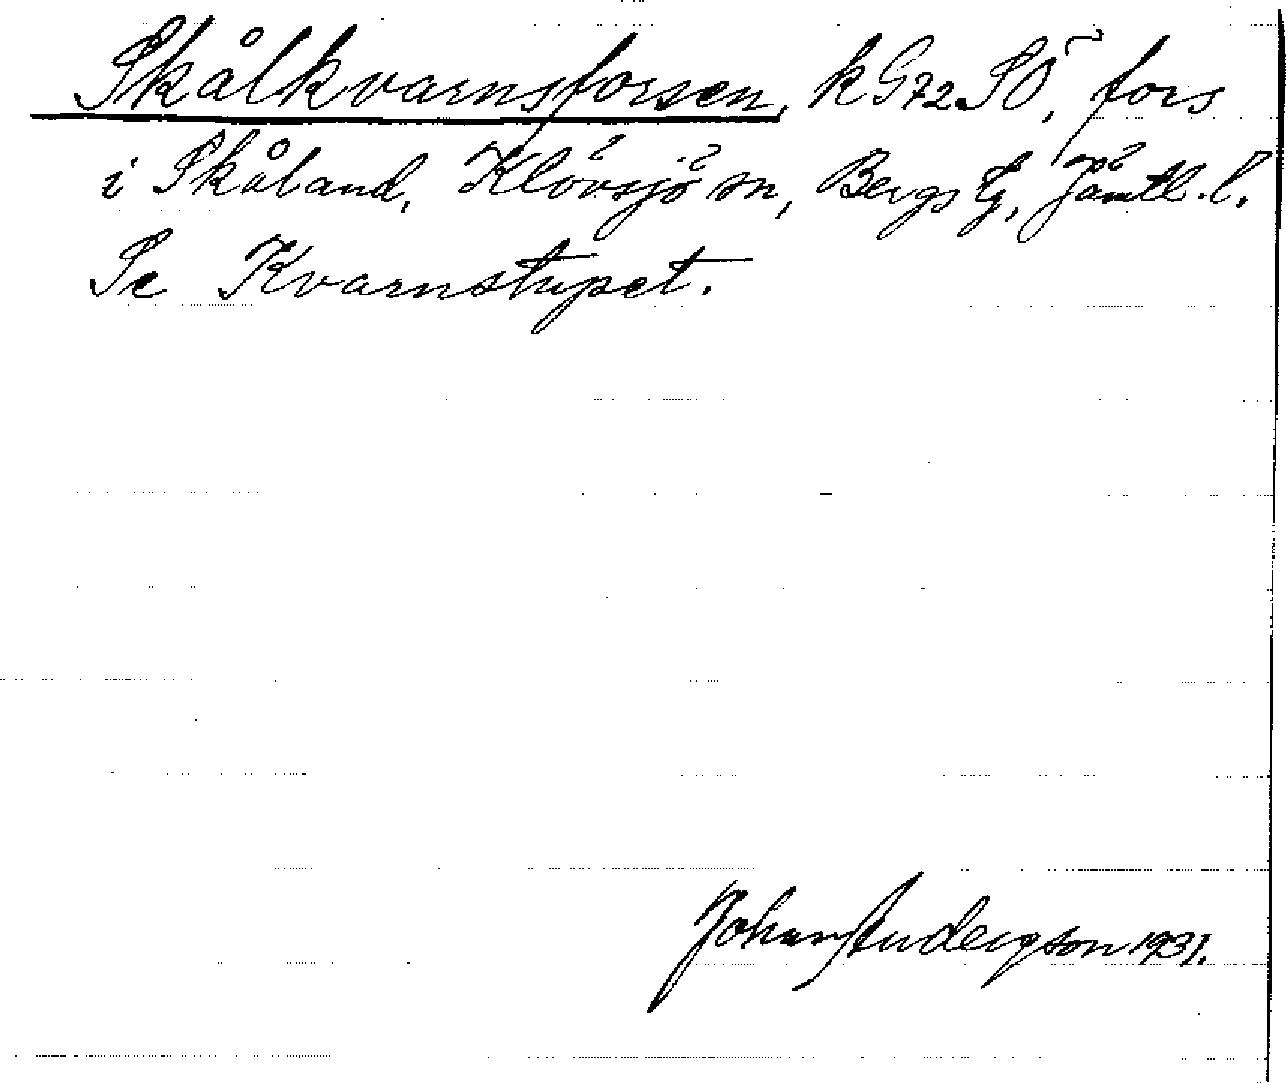 Skålkvarnsforsen, kG72SÖ, fors
i Skåland, Klövsjö sn, Bergs tg, Jämtl. l.
Se Kvarnstupet.
Johan Andersson 1931.